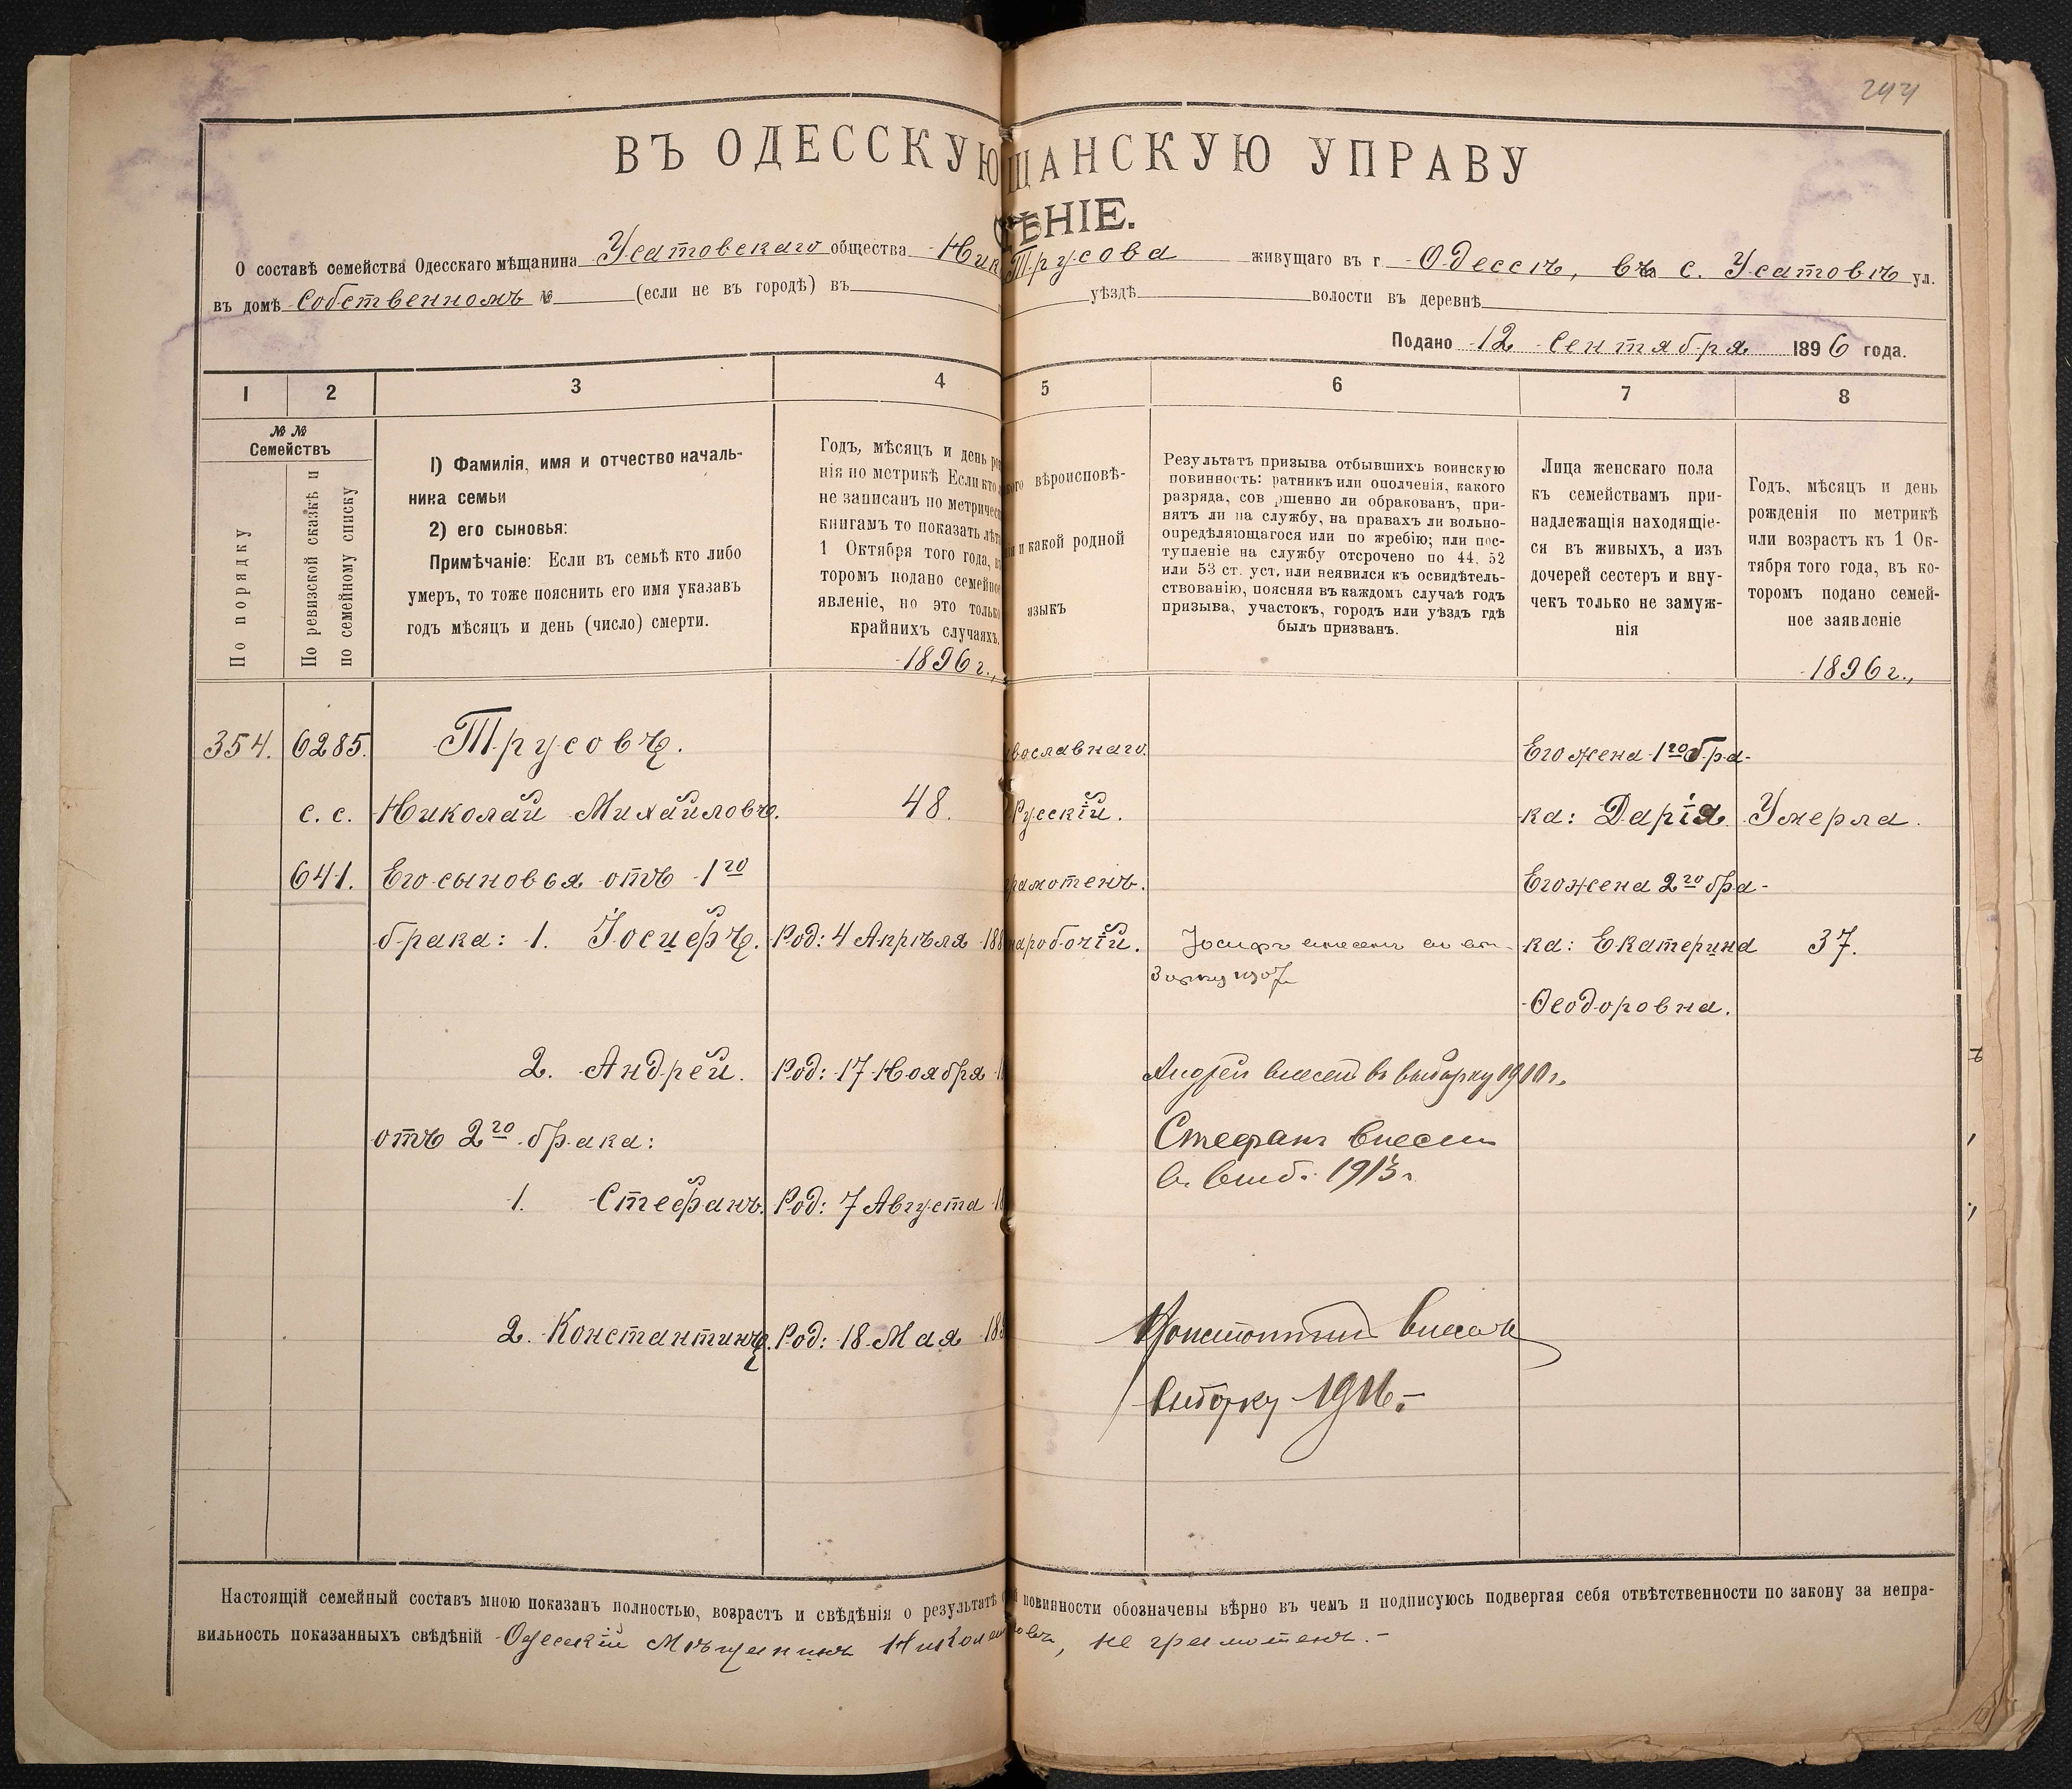 244
ВЪ ОДЕССКУЮ ЩАНСКУЮ УПРАВУ
ѢНІЕ.
О составѣ семейства Одесскаго мѣщанина Усатовскаго общества Ник Трусова живущаго въ г Одессѣ, въ с. Усатовѣ ул.
въ домѣ собственномъ № (если не въ городѣ) въ уѣздѣ волости въ деревнѣ
Подано 12 Сентября 1896 года.
1 2 3 4 5 6 7 8
№ №
Семействъ
По порядку
По ревизской сказкѣ и
по семейному списку
1) Фамилія, имя и отчество началь-
ника семьи
2) его сыновья:
Примѣчаніе: Если въ семьѣ кто либо
умеръ, то тоже пояснить его имя указавъ
годъ мѣсяцъ и день (число) смерти.
Годъ, мѣсяцъ и день ро
нія по метрикѣ Если кто
не записанъ по метричес
книгамъ то показать лѣта
1 Октября того года,
торомъ подано семейное
явленіе, но это только
крайнихъ случаяхъ.
1896 г.,
вѣроисповѣ-
и какой родной
языкъ
Результатъ призыва отбывшихъ воинскую
повинность: ратникъ или ополченія, какого
разряда, сов ршенно ли обракованъ, при-
нятъ ли на службу, на правахъ ли вольно-
опредѣляющагося или по жребію; или пос-
тупленіе на службу отсрочено по 44, 52
или 53 ст. уст, или неявился къ освидѣтель-
ствованію, поясняя въ каждомъ случаѣ годъ
призыва, участокъ, городъ или уѣздъ гдѣ
былъ призванъ.
Лица женскаго пола
къ семействамъ при-
надлежащія находящіе-
ся въ живыхъ, а изъ
дочерей сестеръ и вну-
чекъ только не замуж-
нія
Годъ, мѣсяцъ и день
рожденія по метрикѣ
или возрастъ къ 1 Ок-
тября того года, въ ко-
торомъ подано семей-
ное заявленіе
1896 г.,
354. 6285. Трусовъ. вославнаго. Его жена 1го бра-
с. с. Николай Михайловъ. 48. Русскій. ка: Дарія Умерла.
641. Его сыновья отъ 1го рамотенъ. Его жена 2го бра-
брака: 1. Іосифъ. Род: 4 Апрѣля 188 наробочій. Іосифъ внесенъ въ вы- ка: Екатерина 37.
1907
Ѳеодоровна.
2. Андрей. Род: 17 Ноября 1 Андрей внесенъ въ выборку 1910 г.
отъ 2го брака: Стефанъ внесен
в. выб. 1913 г.
1. Стефанъ. Род: 7 Августа 1
2. Константинъ. Род: 18 Мая 18 Константин внесен
выборку 1916.-
Настоящій семейный составъ мною показанъ полностью, возрастъ и свѣдѣнія о результатѣ й повинности обозначены вѣрно въ чемъ и подписуюсь подвергая себя отвѣтственности по закону за непра-
вильность показанныхъ свѣдѣній Одесскій Мѣщанинъ Никола овъ, не грамотенъ.-